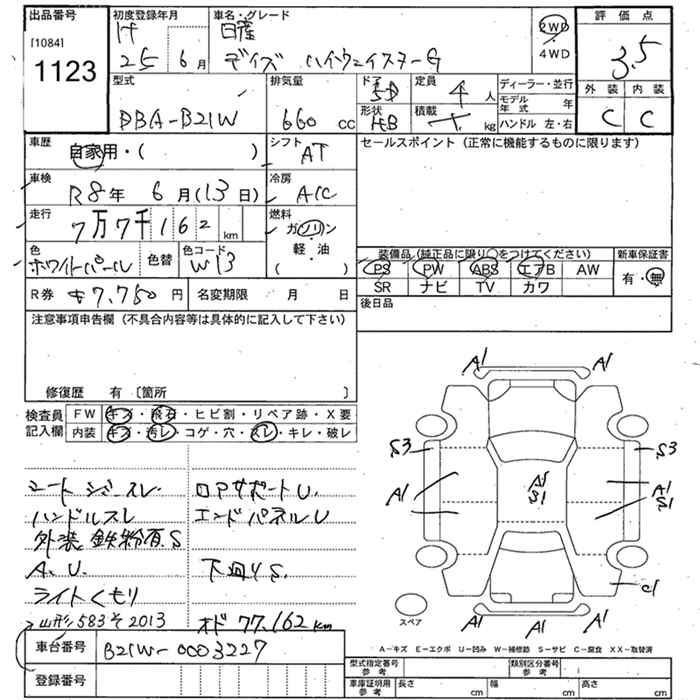 出品番号
[1084]
1123
初度登録年月
H
25 6 月
車名・グレード
日産
デイズ ハイウェイスターG
2WD
・
4WD
評価点
3.5
外装 内装
C C
型式
DBA-B21W
排気量
660 cc
ドア
5D
形状
HB
定員
4 人
積載
kg
ディーラー・並行
モデル年式 年
ハンドル 左・右
車歴
自家用・( )
シフト
AT
セールスポイント (正常に機能するものに限ります)
車検
R8年 6月(13日)
冷房
A/C
走行
7万7千162 km
燃料
ガソリン
・
軽・油
( )
色
ホワイトパール
色替
色コード
W13
装備品 (純正品に限り○をつけてください)
PS PW ABS エアB AW
SR ナビ TV カワ
新車保証書
有・無
R券 ¥7,750 円
名変期限 月 日
後日品
注意事項申告欄 (不具合内容等は具体的に記入して下さい)
修復歴 有 〔箇所 〕
検査員記入欄
FW キズ・飛石・ヒビ割・リペア跡・X要
内装 キズ・汚レ・コゲ・穴・スレ・キレ・破レ
シートシワ スレ
ハンドルスレ
外装 鉄粉有.S
A.U.
ライトくもり
山形583そ2013
ロアサポートU.
エンドパネルU
下廻りS.
オド 77,162 km
A1 A1
S3 S3
A1
A1
S1
A1
S1
C1
A1 A1 A1
スペア
A-キズ E-エクボ U-凹み W-補修跡 S-サビ C-腐食 XX-取替済
車台番号 B21W-0003227
登録番号
型式指定番号
参考
類別区分番号
参考
車庫証明用
参考
長さ cm 幅 cm 高さ cm